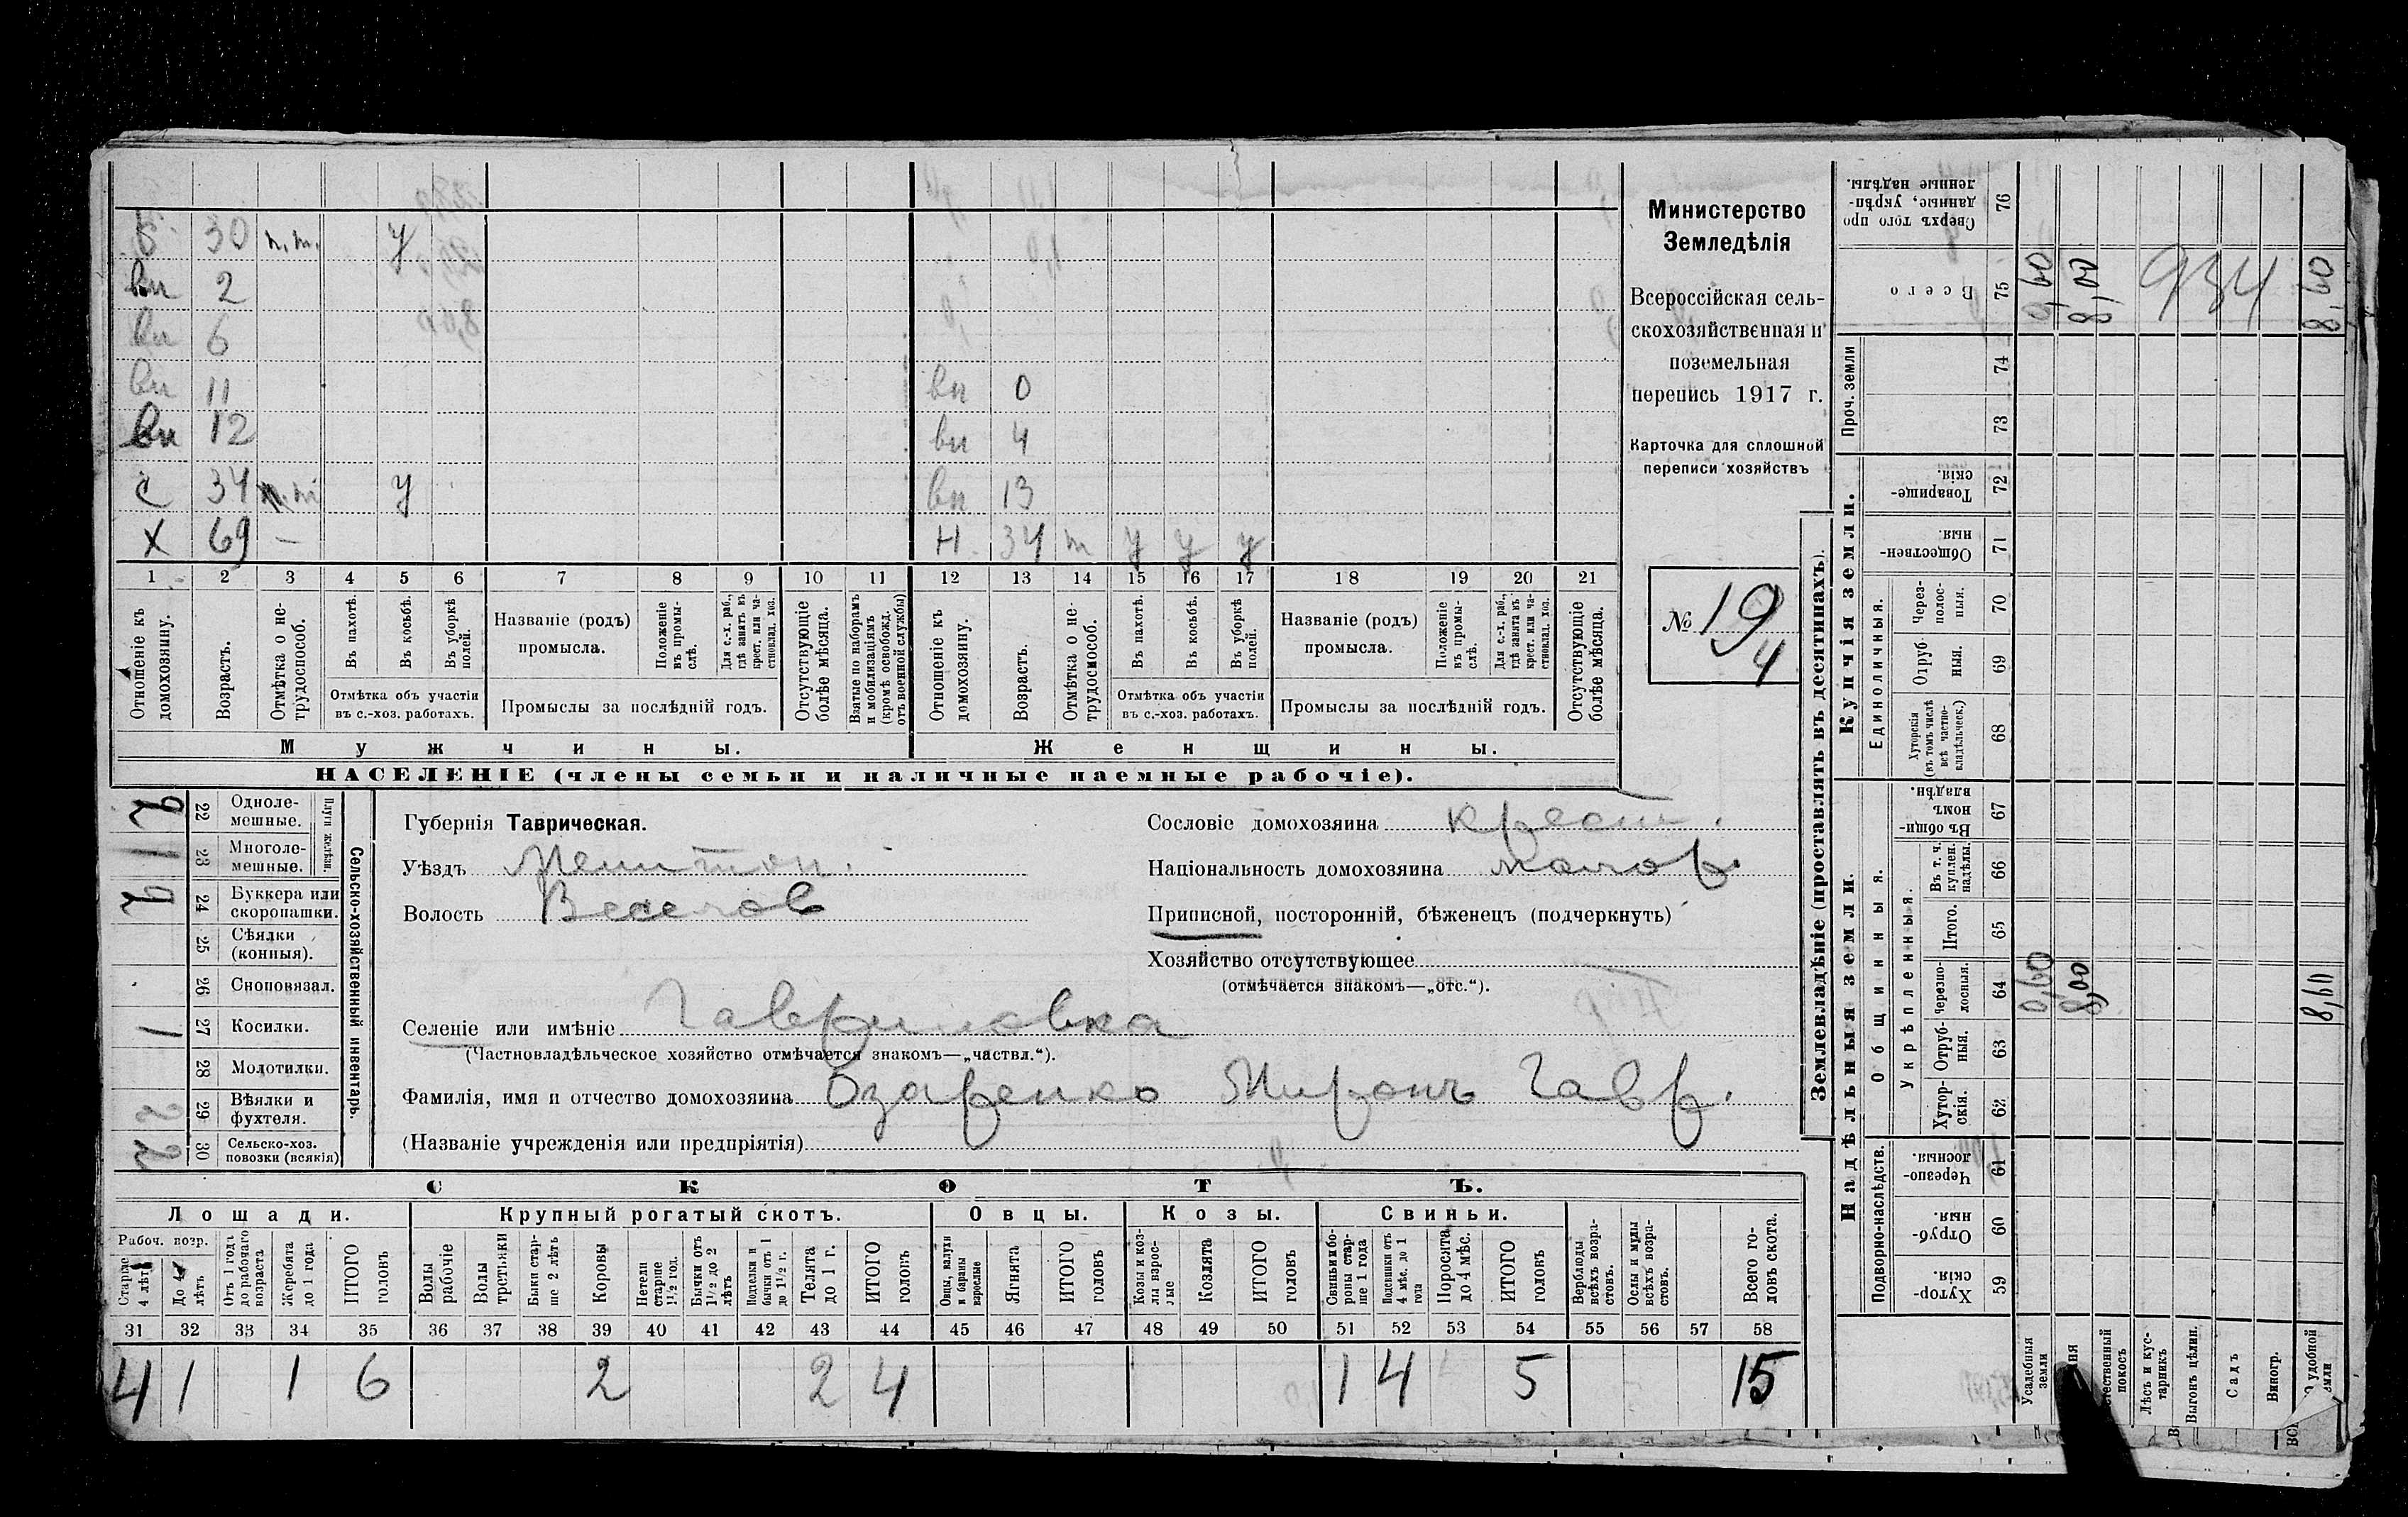 Б. 30 п.т. у
вн 2
вн 6
вн 11 вн 0
вн 12 вн 4
с 34 п.т у вн 13
Х 69 — Н. 34 т у у у
1 2 3 4 5 6 7 8 9 10 11 12 13 14 15 16 17 18 19 20 21
Отношеніе къ домохозяину.
Возрастъ.
Отмѣтка о не-трудоспособ.
Въ пахотѣ.
Въ косьбѣ.
Въ уборкѣ полей.
Отмѣтка объ участіи
въ с.-хоз. работахъ.
Названіе (родъ)
промысла.
Положеніе въ промы-слѣ.
Для с.-х. раб., гдѣ занятъ въ крест. или ча-стновлад. хоз.
Промыслы за послѣдній годъ.
Отсутствующіе болѣе мѣсяца.
Взятые по наборамъ и мобилизаціямъ (кромѣ освобожд. отъ военной службы)
Отношеніе къ домохозяину.
Возрастъ.
Отмѣтка о не-трудоспособ.
Въ пахотѣ.
Въ косьбѣ.
Въ уборкѣ полей.
Отмѣтка объ участіи
въ с.-хоз. работахъ.
Названіе (родъ)
промысла.
Положеніе въ промы-слѣ.
Для с.-х. раб., гдѣ занята въ крест. или ча-стновлад. хоз.
Промыслы за послѣдній годъ.
Отсутствующіе болѣе мѣсяца.
Мужчины. Женщины.
НАСЕЛЕНІЕ (члены семьи и наличные наемные рабочіе).
Министерство
Земледѣлія
Всероссійская сель-
скохозяйственная и
поземельная
перепись 1917 г.
Карточка для сплошной
переписи хозяйствъ
№ 19
4
Сельско-хозяйственный инвентарь.
Плуги желѣзн.
22 Одноле-мешные. 2
23 Многоле-мешные. 1
24 Буккера или скоропашки. 2
25 Сѣялки (конныя).
26 Сноповязал.
27 Косилки. 1
28 Молотилки.
29 Вѣялки и фухтеля. 2
30 Сельско-хоз. повозки (всякія) 2
Губернія Таврическая.
Уѣздъ Мелитоп.
Волость Веселов
Селеніе или имѣніе Гавриловка
(Частновладѣльческое хозяйство отмѣчается знакомъ—„частвл.“).
Фамилія, имя и отчество домохозяина Озаренко Миронъ Гавр.
(Названіе учрежденія или предпріятія)
Сословіе домохозяина крест.
Національность домохозяина малор.
Приписной, посторонній, бѣженецъ (подчеркнуть)
Хозяйство отсутствующее
(отмѣчается знакомъ—„отс.“).
СКОТЪ.
Лошади. Крупный рогатый скотъ. Овцы. Козы. Свиньи.
Рабоч. возр.
Старше 4 лѣтъ
До 4 лѣтъ
Отъ 1 года до рабочаго возраста
Жеребята до 1 года
ИТОГО головъ
Волы рабочіе
Волы третьяки
Быки стар-ше 2 лѣтъ
Коровы
Нетели старше 1½ год.
Бычки отъ 1½ до 2 лѣтъ
Подтелки и бычки отъ 1 до 1½ г.
Телята до 1 г.
ИТОГО головъ
Овцы, валухи и бараны взрослые
Ягнята
ИТОГО головъ
Козы и коз-лы взрос-лые
Козлята
ИТОГО головъ
Свиньи и бо-ровы стар-ше 1 года
Подсвинки отъ 4 мѣс. до 1 года
Поросята до 4 мѣс.
ИТОГО головъ
Верблюды всѣхъ возра-стовъ.
Ослы и мулы всѣхъ возра-стовъ.
Всего го-ловъ скота.
31 32 33 34 35 36 37 38 39 40 41 42 43 44 45 46 47 48 49 50 51 52 53 54 55 56 57 58
4 1 1 6 2 2 4 1 4 5 15
Землевладѣніе (проставлять въ десятинахъ).
Купчія земли.
Надѣльныя земли.
Сверхъ того про-данные, укрѣп-ленные надѣлы. 76
Всего 75 0,60 8,00 934 8,60
Проч. земли 74 73
Товарище-скія. 72
Обществен-ныя. 71
Единоличныя.
Через-полос-ныя. 70
Отруб-ныя. 69
Хуторскія (въ томъ числѣ всѣ частно-владѣльческ.) 68
Общинныя.
Въ общи-номъ владѣн. 67
Укрѣпленныя.
Въ т. ч. куплен. надѣлы. 66
Итого. 65
Черезпо-лосныя. 64 0,60 8,00 8,60
Отруб-ныя. 63
Хутор-скія. 62
Подворно-наслѣдств.
Черезпо-лосныя. 61
Отруб-ныя. 60
Хутор-скія. 59
Усадебныя земли
Лѣсъ и кус-тарникъ
Выгонъ цѣлин.
Садъ
Виногр.
удобной